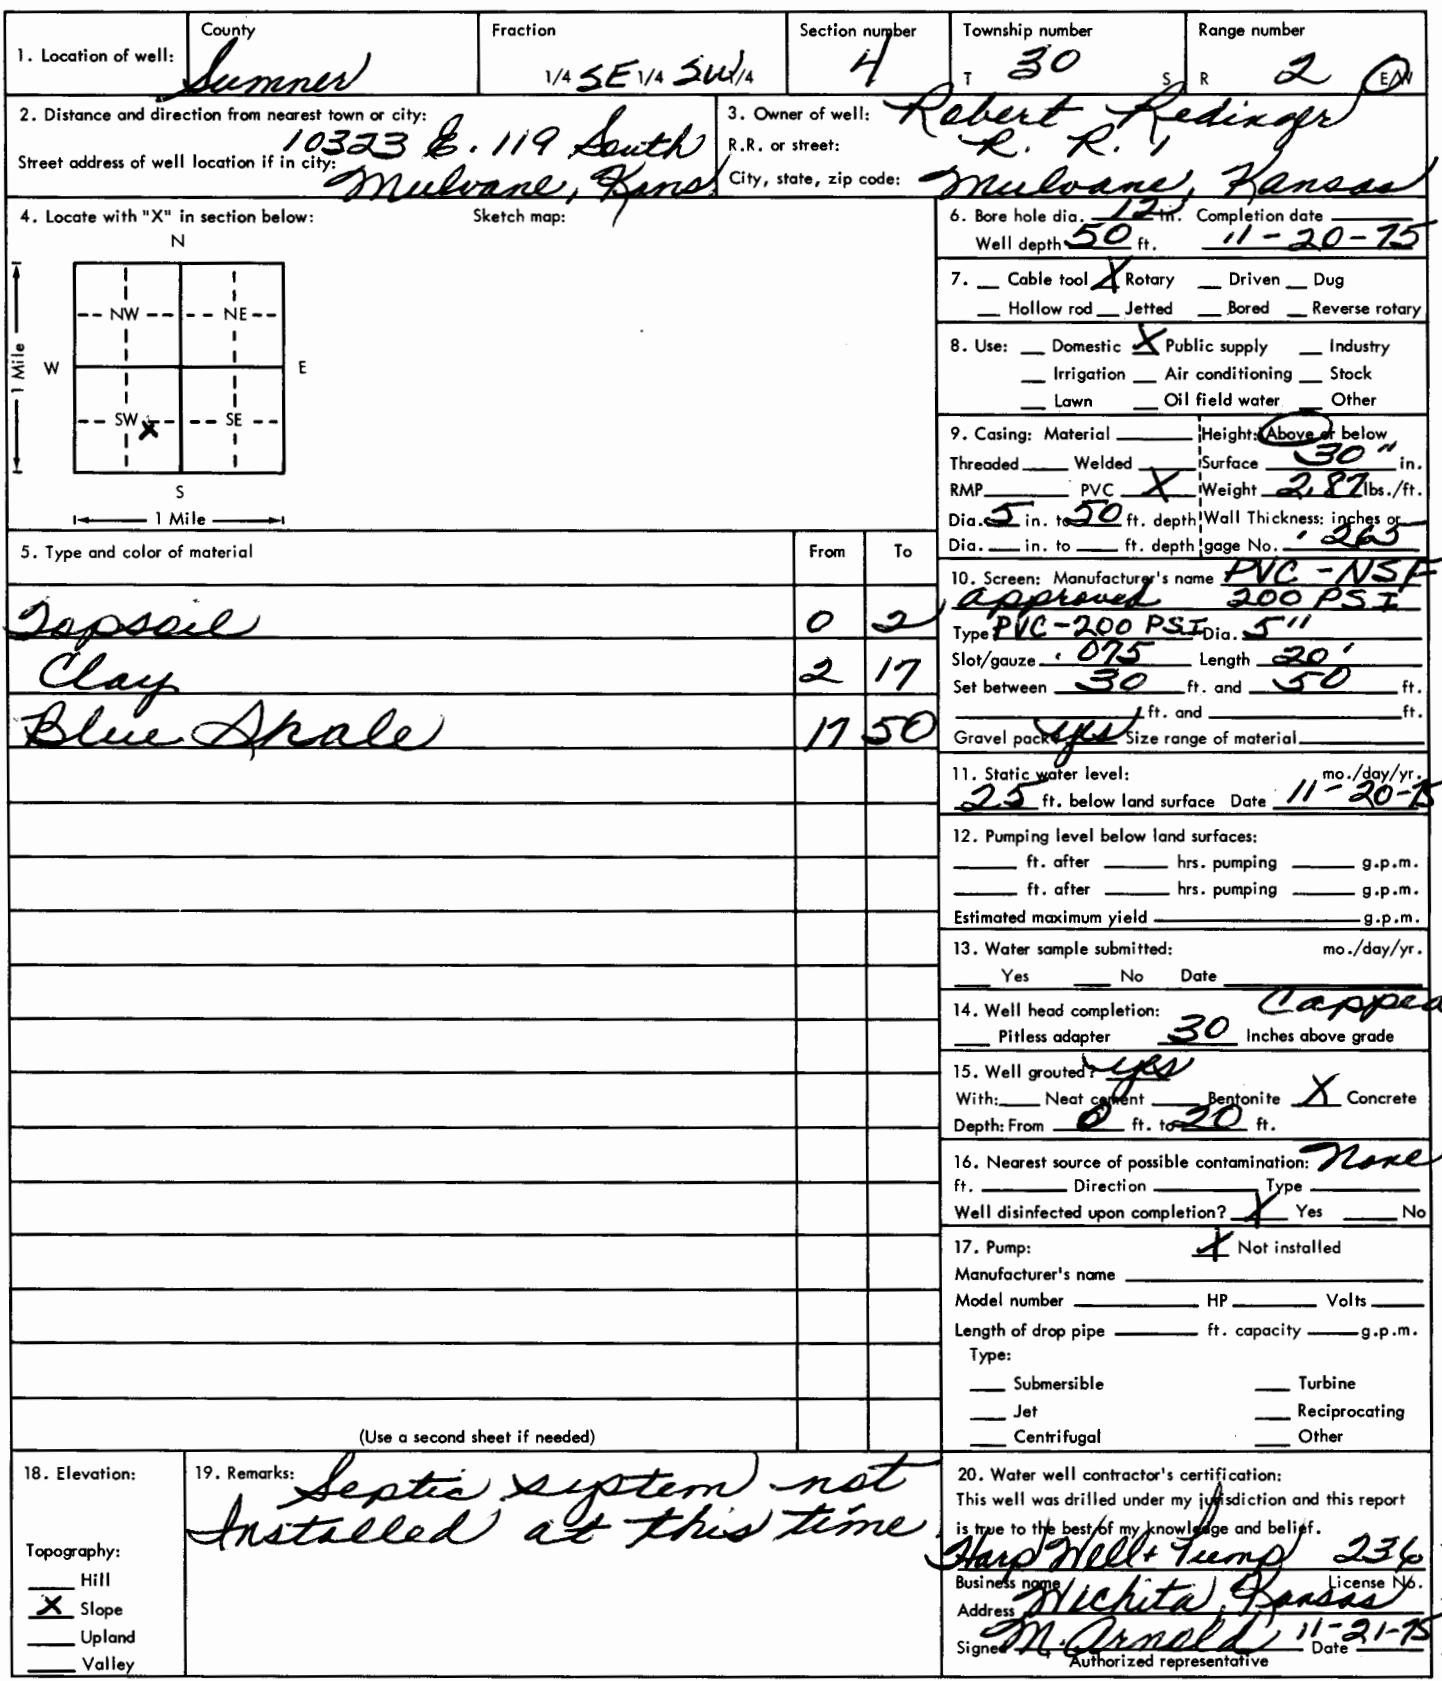 County Fraction Section number Township number Range number
1. Location of well: Sumner 1/4 SE 1/4 SW 1/4 4 T 30 S R 2 E/W
2. Distance and direction from nearest town or city: 3. Owner of well: Robert Redinger
10323 E. 119 South R.R. or street: R. R. 1
Street address of well location if in city:
Mulvane, Kans City, state, zip code: Mulvane, Kansas
4. Locate with "X" in section below: Sketch map:
N
NW NE
W E
SW X SE
S
1 Mile
1 Mile
5. Type and color of material From To
Topsoil 0 2
Clay 2 17
Blue Shale 17 50
(Use a second sheet if needed)
6. Bore hole dia. 12 in. Completion date
Well depth 50 ft. 11-20-75
7. Cable tool X Rotary Driven Dug
Hollow rod Jetted Bored Reverse rotary
8. Use: Domestic X Public supply Industry
Irrigation Air conditioning Stock
Lawn Oil field water Other
9. Casing: Material Height: Above or below
Threaded Welded Surface 30" in.
RMP PVC X Weight 2.87 lbs./ft.
Dia. 5 in. to 50 ft. depth Wall Thickness: inches or
Dia. in. to ft. depth gage No. .265
10. Screen: Manufacturer's name PVC - NSF
approved 200 PSI
Type PVC-200 PSI Dia. 5"
Slot/gauze .075 Length 20'
Set between 30 ft. and 50 ft.
ft. and ft.
Gravel pack yes Size range of material
11. Static water level: mo./day/yr.
25 ft. below land surface Date 11-20-75
12. Pumping level below land surfaces:
ft. after hrs. pumping g.p.m.
ft. after hrs. pumping g.p.m.
Estimated maximum yield g.p.m.
13. Water sample submitted: mo./day/yr.
Yes No Date
14. Well head completion: Capped
Pitless adapter 30 Inches above grade
15. Well grouted? yes
With: Neat cement Bentonite X Concrete
Depth: From 0 ft. to 20 ft.
16. Nearest source of possible contamination: None
ft. Direction Type
Well disinfected upon completion? X Yes No
17. Pump: X Not installed
Manufacturer's name
Model number HP Volts
Length of drop pipe ft. capacity g.p.m.
Type:
Submersible Turbine
Jet Reciprocating
Centrifugal Other
18. Elevation:
Topography:
Hill
X Slope
Upland
Valley
19. Remarks: Septic system not
Installed at this time
20. Water well contractor's certification:
This well was drilled under my jurisdiction and this report
is true to the best of my knowledge and belief.
Harp Well + Pump 236
Business name License No.
Address Wichita, Kansas
Signed M. Arnold Date 11-21-75
Authorized representative